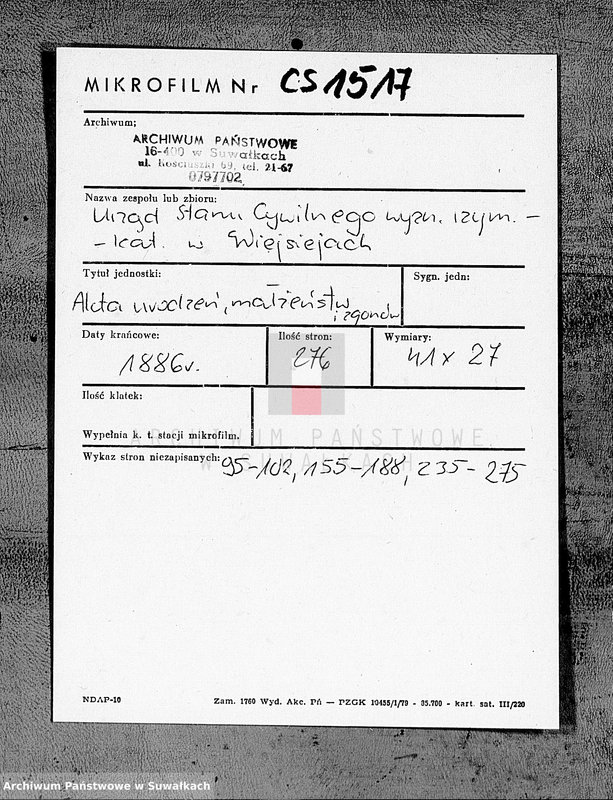 MIKROFILM Nr CS 1517
Archiwum;
ARCHIWUM PAŃSTWOWE
16-400 w Suwałkach
ul. Kościuszki 69, tel. 21-67
0797702
Nazwa zespołu lub zbioru:
Urząd Stanu Cywilnego wyzn. rzym. -
- kat. w Wiejsiejach
Tytuł jednostki:
Sygn. jedn:
Akta urodzeń, małżeństw
i zgonów
Daty krańcowe:
Ilość stron:
Wymiary:
1886r.
276
41 x 27
Ilość klatek:
Wypełnia k. t. stacji mikrofilm.
ARCHIWUM PAŃSTWOWE
W SUWAŁKACH
Wykaz stron niezapisanych: 95-102, 155-188, 235-275
NDAP-10
Zam. 1760 Wyd. Akc. Pń — PZGK 10455/1/79 - 35.700 - kart. sat. III/220
Archiwum Państwowe w Suwałkach